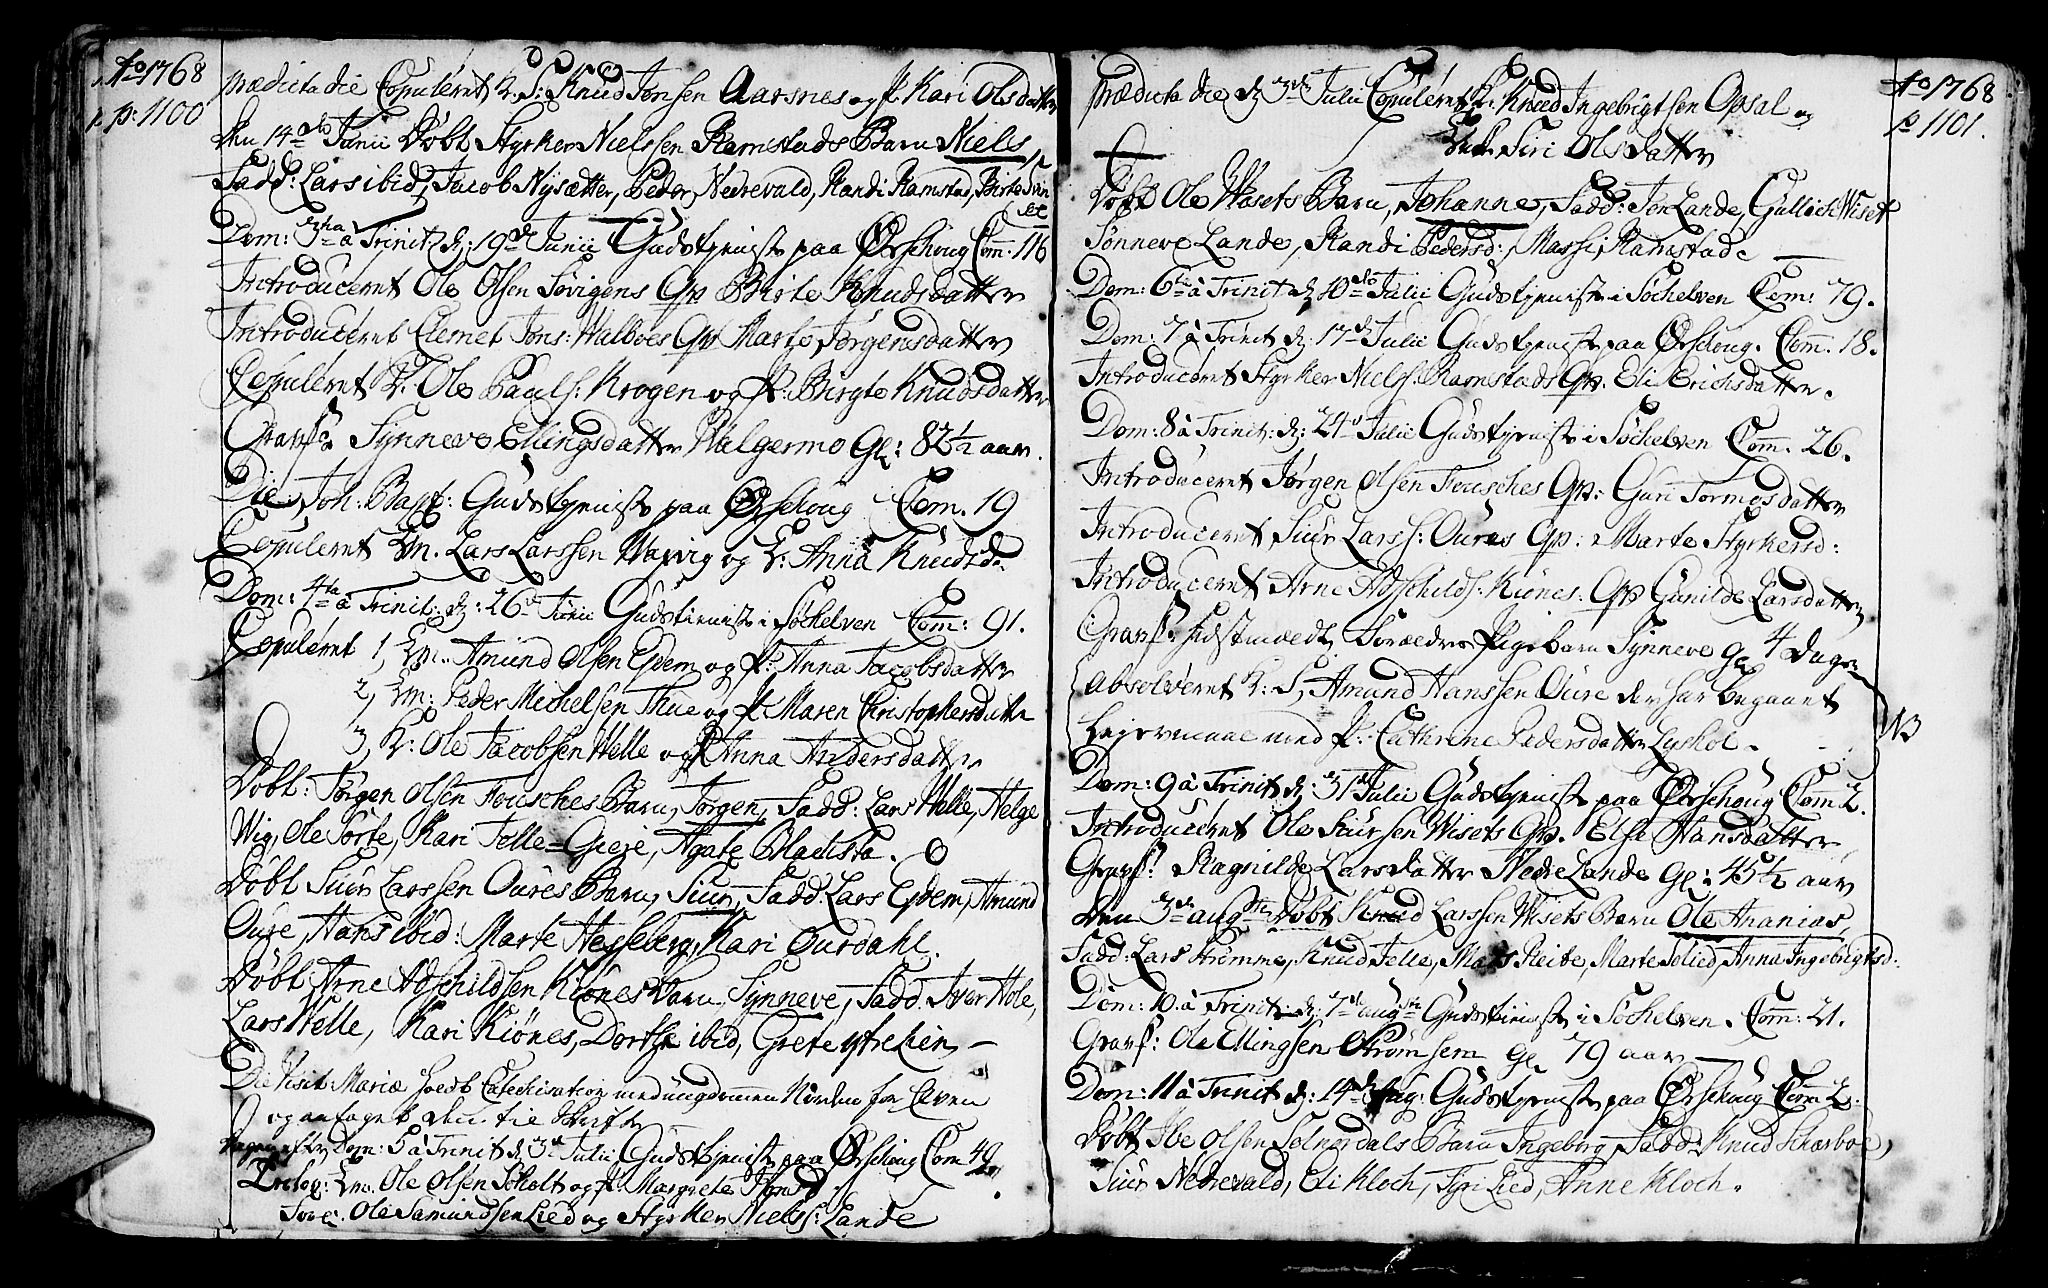 Ao 1768
p: 1100
Prædicta die Copuleret K. S: Knud Jonsen Aarsnes og P. Kari Olsdatter
Den 14de Junii Döbt Styrker Nielssen Ramstads Barn Niels,
Fadd: Lars ibid, Jacob Nysætter, Peder Nedrevald, Randi Ramstad, Birte
Dom: 3tia â Trinit: d: 19de Junii Gudstjeniste paa Ørschoug Com: 116
Introduceret Ole Olsen Sövigens Qv. Birte Knudsdatter
Introduceret Clemet Jons: Walböes Qv. Marte Jörgensdatter
Copuleret K: Ole Pauls: Krogen og P: Birgte Knudsdatter
Grafs: Synneve Ellingsdatter Walgermo Gl: 82½ aar.
Die Joh: Bapt: Gudstjeniste paa Ørschoug Com. 19
Copuleret Em. Lars Larssen Warvig og K: Anna Knudsd.
Dom: 4ta â Trinit: d: 26de Junii Gudstieniste i Söchelven Com: 91.
Copuleret 1, Em. Amund Olsen Egdem og P: Anna Jacobsdatter
2, Em: Peder Michelsen Thue og P. Maren Christophersdatter
3, K: Ole Jacobsen Welle og P. Anna Andersdatter
Döbt: Jörgen Olsen Fousches Barn, Jörgen, Fadd: Lars Welle, Helge
Wig, Ole Sorte, Kari Felle=Gieje, Agate Blachsta.
Döbt Siur Larssen Oures Barn, Siur, Fadd: Lars Egdem, Amund
Oure, Hans ibid: Marte Hesseberg, Kari Ourdahl.
Döbt Arne Adschildsen Kiönes Barn, Synneve, Fadd. Iver Hole,
Lars Welle, Kari Kiönes, Dorthe ibid, Grete ystrehim
Die Visit: Mariæ hoedt Catechisation med ungdommen Norden for Elven
og antaget dem til Skrifte
Dom: 5 â Trinit d: 3de Julii Gudstjeniste paa Ørschoug Com 49
Trolov: Em. Ole Olsen Scholt og P. Margrete
Forl: Ole Samundsen Lied og Styrker Niels: Lande
Ao 1768
p 1101.
Prædicta die d: 3de Julii Copuleret K: Knud Ingebrigtsen Opsal og
Enk. Siri Olsdatter
Döbt Ole Wisets Barn, Johanne, Fadd: Jon Lande, Gullich Wiset
Sönneve Lande, Randi Pedersd:, Massi Ramstad.
Dom: 6te â Trinit d: 10de Julii Gudstjeniste i Söchelven Com: 79.
Dom: 7 â Trinit d: 17de Julii Gudstjeniste paa Ørschoug. Com. 18.
Introduceret Styrker Niels: Ramstads Qv. Eli Erichsdatter.
Dom: 8 â Trinit: d: 24de Julii Gudstjeniste i Söchelven Com. 26.
Introduceret Jörgen Olsen Fousches Qv: Guri Tormosdatter
Introduceret Siur Larss: Oures Qv: Marte Styrkersd:
Introduceret Arne Adschilds: Kiönes: Qv. Gunilde Larsdatter
Grafs: sidstmeldte Forældres Pigebarn Synneve Gl 4 dage
Absolveret K: S, Amund Hanssen Oure der har begaaet
Leiermaal med P: Cathrine Pedersdatter Lyshol.
N3
Dom: 9 â Trinit d: 31te Julii Gudstjeniste paa Ørschoug Com 2.
Introduceret Ole Siursen Wisets Qv. Else Hansdatter
Grafs: Ragnilde Larsdatter Nedre Lande Gl: 45½ aar
Den 3de augusti Döbt Knud Larssen Wisets Barn Ole Ananias,
Fadd: Lars Strömme, Knud Felle, Mats Reite, Marte Selied, Anna Ingebrigtsd:
Dom: 10 â Trinit: d: 7de augusti Gudstieniste i Söchelven. Com: 21.
Grafs: Ole Ellingsen Strömsem Gl 79 aar
Dom: 11 â Trinit d: 14de Aug. Gudstjeniste paa Ørschoug Com 2.
Döbt Ibe Olsen Solnørdals Barn Ingeborg, Fadd: Knud Scharboe,
Siur Nedrevald, Eli Kloch, Siri Lied, Anne Kloch.